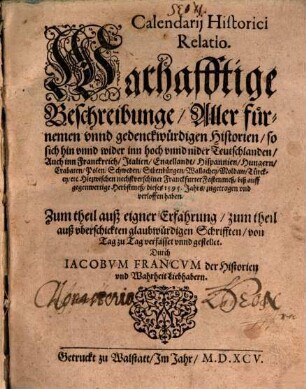 Calendarij Historici
Relatio.
Warhafftige
Beschreibunge / Aller für-
nemen vnnd gedenckwürdigen Historien / so
sich hin vnnd wider inn hoch vnnd nider Teutschlanden /
Auch inn Franckreich / Italien / Engellandt / Hispannien / Hungern /
Crabaten / Polen / Schweden / Sibenbürgen / Wallachey / Moldaw / Türck-
ey / etc. Hiezwischen nechstverschiner Franckfurter Fastenmeß / biß auff
gegenwertige Herbstmeß / dieses 1595. Jahrs / zugetragen vnd
verloffen haben.
Zum theil auß eigner Erfahrung / zum theil
auß vberschickten glaubwürdigen Schrifften / von
Tag zu Tag verfasset vnnd gestellet.
Durch
IACOBVM FRANCVM der Historien
vnd Wahrheit Liebhabern.
Getruckt zu Walstatt / Im Jahr / M.D.XCV.